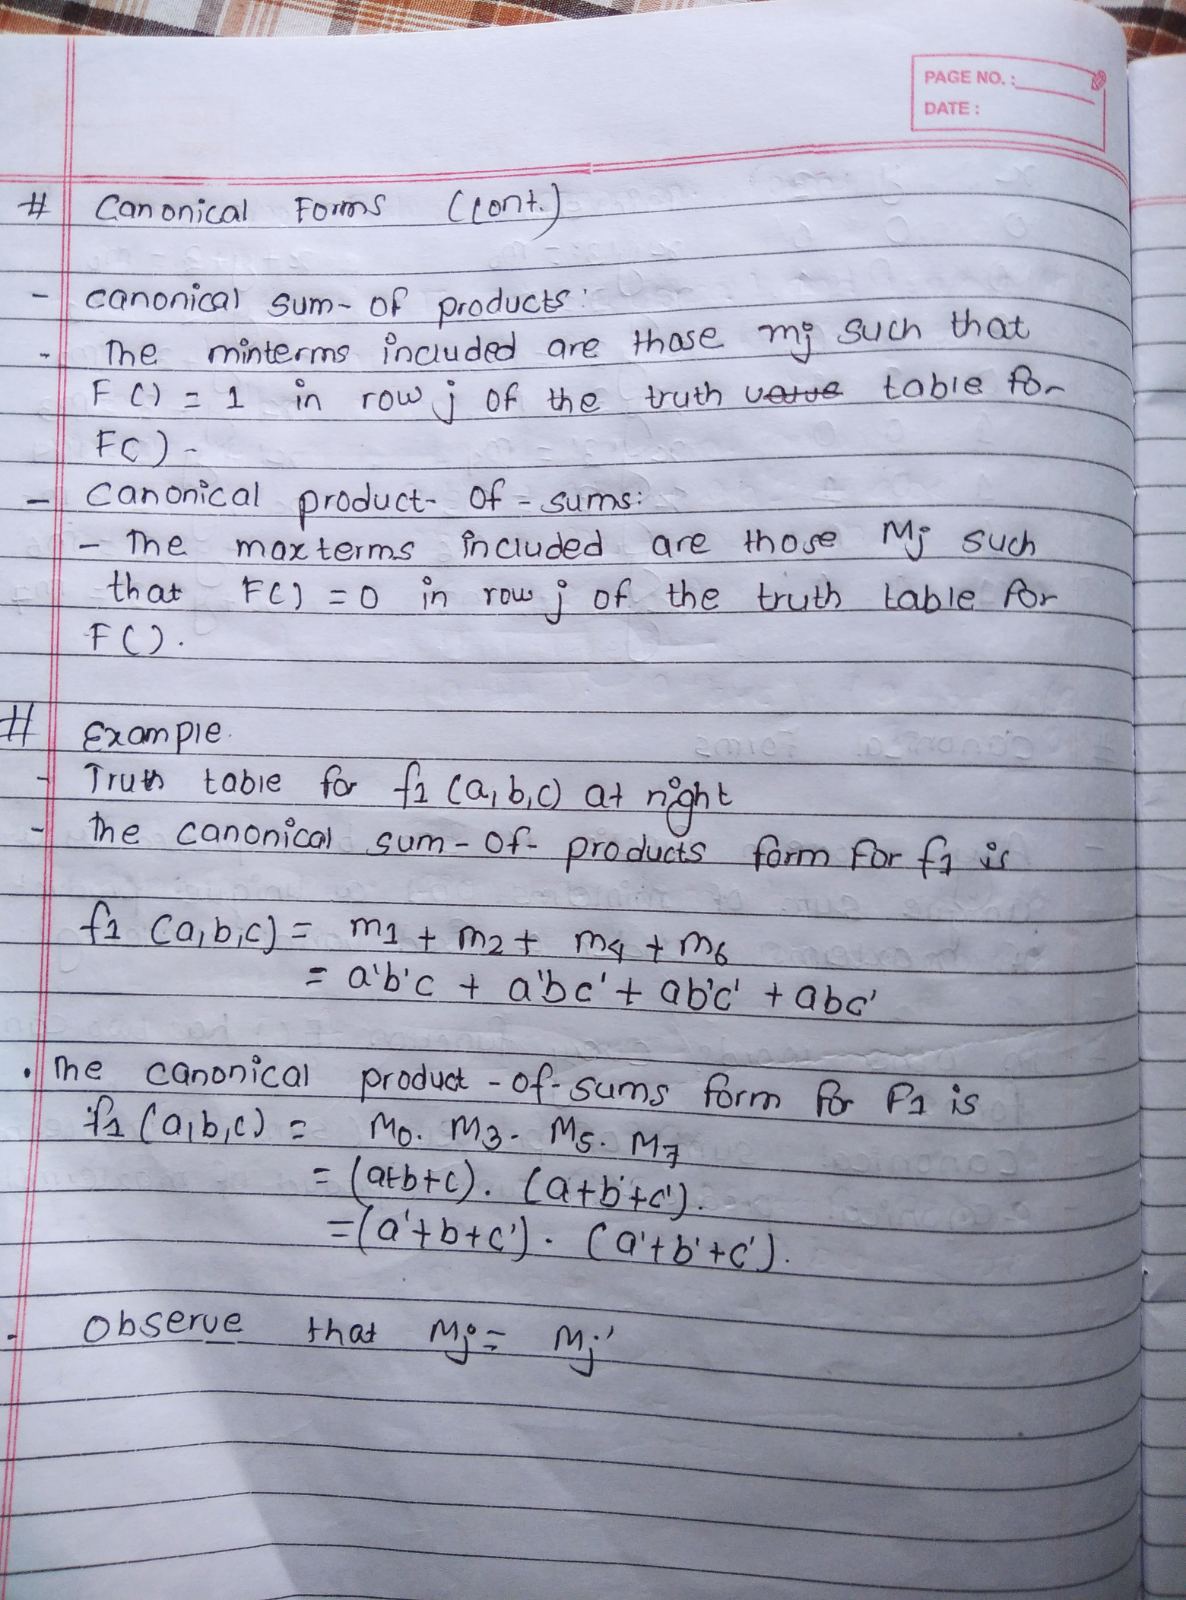 PAGE NO. :
DATE :
# Canonical Forms (cont.)
- canonical sum-of products:
- The minterms included are those mj such that
F() = 1 in row j of the truth table for
F() -
- Canonical product- of - sums:
- The maxterms included are those Mj such
that F() = 0 in row j of the truth table for
F().
# Example.
- Truth table for f1 (a,b,c) at right
- The canonical sum-of- products form for f1 is
f1 (a,b,c) = m1 + m2 + m4 + m6
= a'b'c + a'bc' + ab'c' + abc'
. The canonical product -of-sums form for F1 is
f1 (a,b,c) = M0. M3. M5. M7
= (a+b+c). (a+b'+c').
=(a'+b+c'). (a'+b'+c').
- Observe that Mj = Mj'